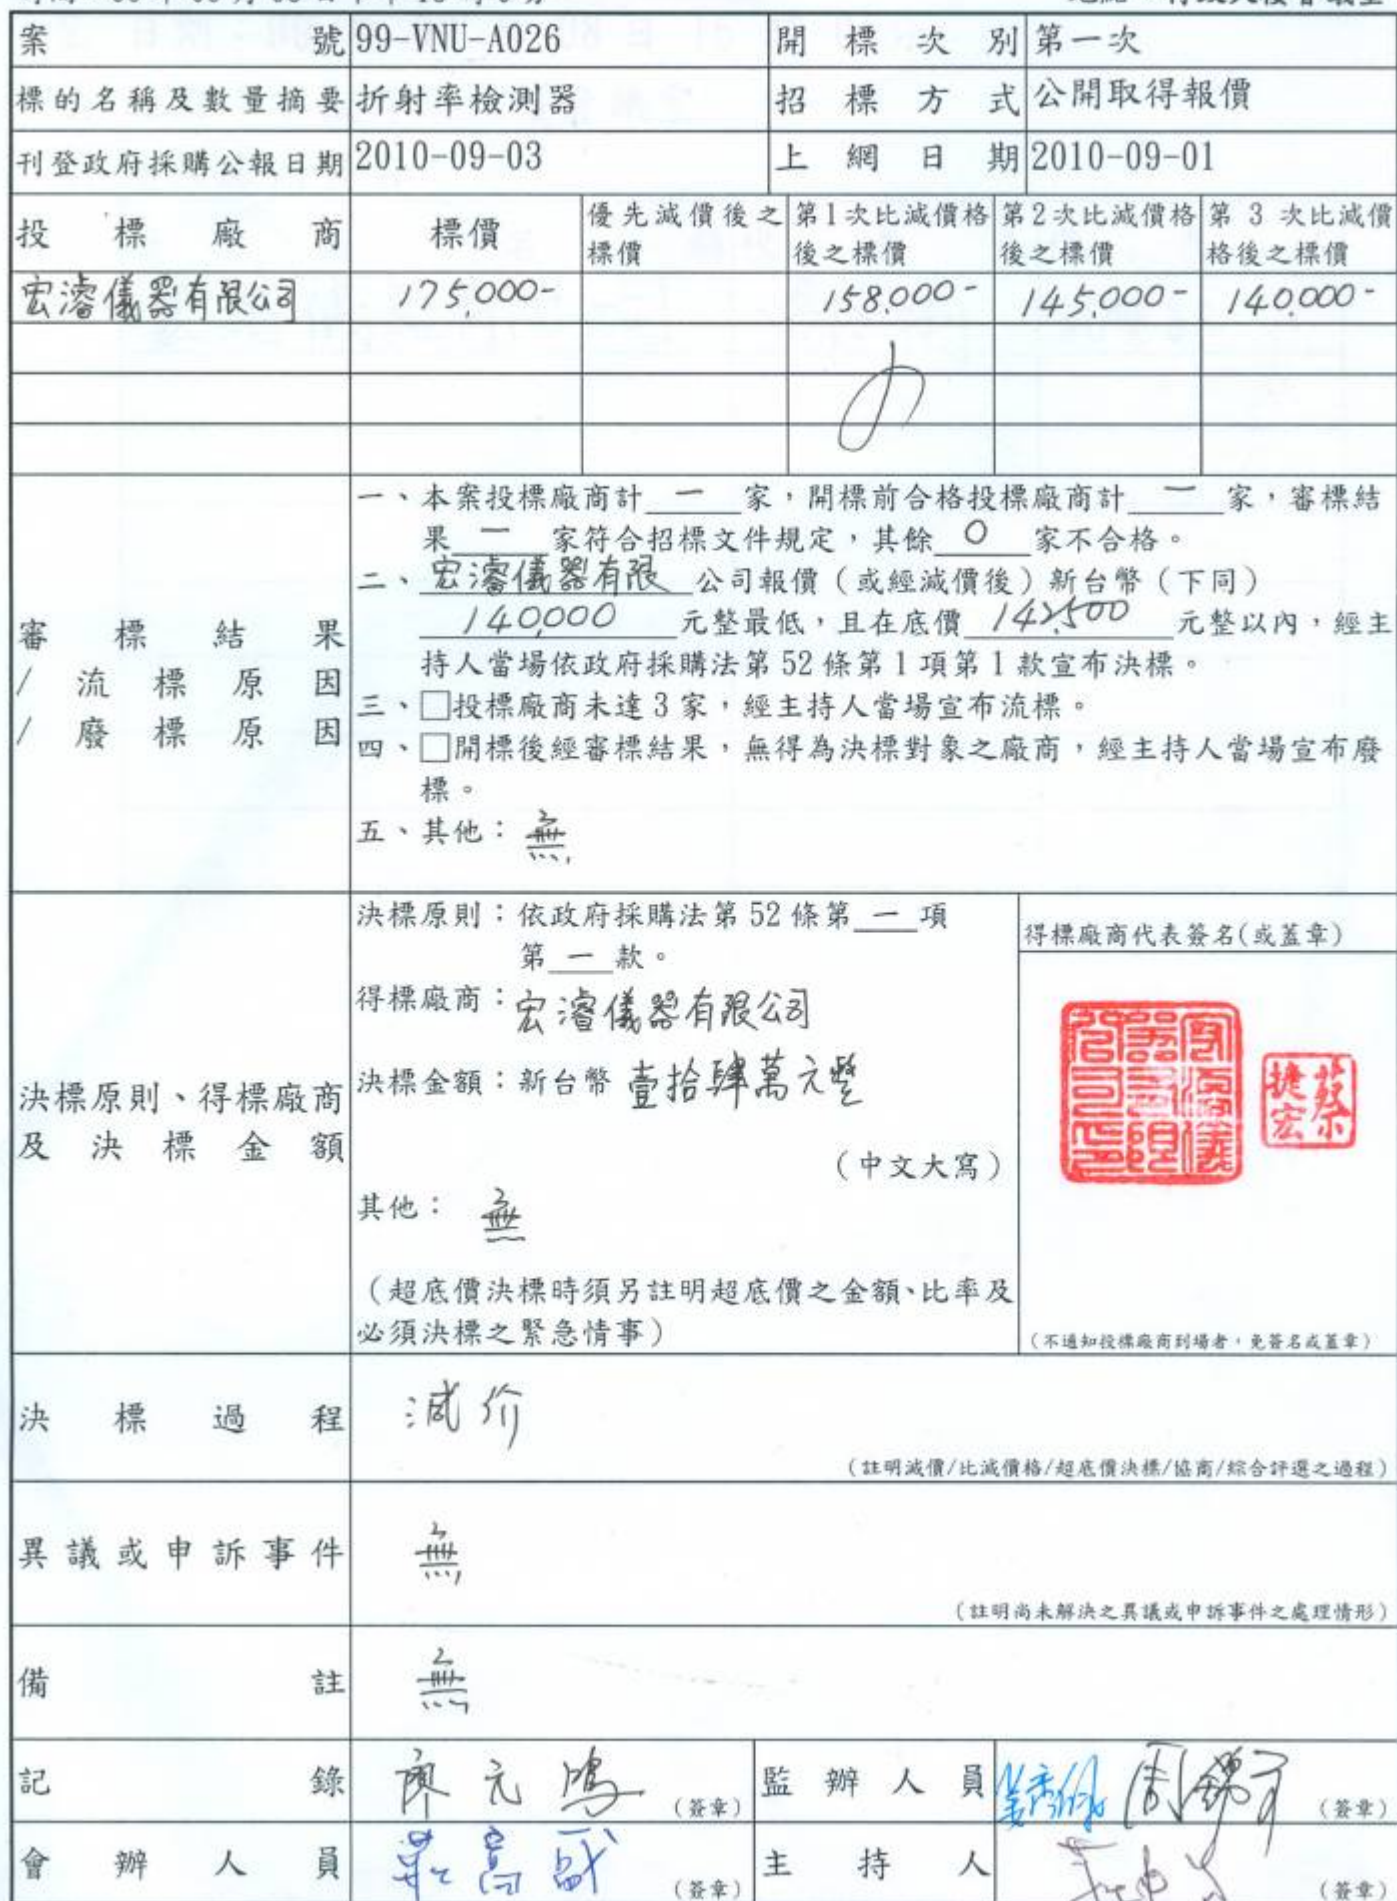 案號 99-VNU-A026 開標次別 第一次
標的名稱及數量摘要 折射率檢測器 招標方式 公開取得報價
刊登政府採購公報日期 2010-09-03 上網日期 2010-09-01
投標廠商 標價 優先減價後之標價 第1次比減價格後之標價 第2次比減價格後之標價 第 3 次比減價格後之標價
宏濬儀器有限公司 175,000- 158,000- 145,000- 140,000-
審標結果
/流標原因
/廢標原因
一、本案投標廠商計 一 家,開標前合格投標廠商計 一 家,審標結
果 一 家符合招標文件規定,其餘 0 家不合格。
二、宏濬儀器有限 公司報價(或經減價後)新台幣(下同)
140,000 元整最低,且在底價 142,500 元整以內,經主
持人當場依政府採購法第 52 條第 1 項第 1 款宣布決標。
三、□投標廠商未達 3 家,經主持人當場宣布流標。
四、□開標後經審標結果,無得為決標對象之廠商,經主持人當場宣布廢
標。
五、其他:無
決標原則、得標廠商
及決標金額
決標原則:依政府採購法第 52 條第 一 項
第 一 款。
得標廠商:宏濬儀器有限公司
決標金額:新台幣 壹拾肆萬元整
(中文大寫)
其他: 無
(超底價決標時須另註明超底價之金額、比率及
必須決標之緊急情事)
得標廠商代表簽名(或蓋章)
蔡捷宏
(不通知投標廠商到場者,免簽名或蓋章)
決標過程 減价
(註明減價/比減價格/超底價決標/協商/綜合評選之過程)
異議或申訴事件 無
(註明尚未解決之異議或申訴事件之處理情形)
備註 無
記錄 廖元鴻 (簽章) 監辦人員 (簽章)
會辦人員 (簽章) 主持人 (簽章)